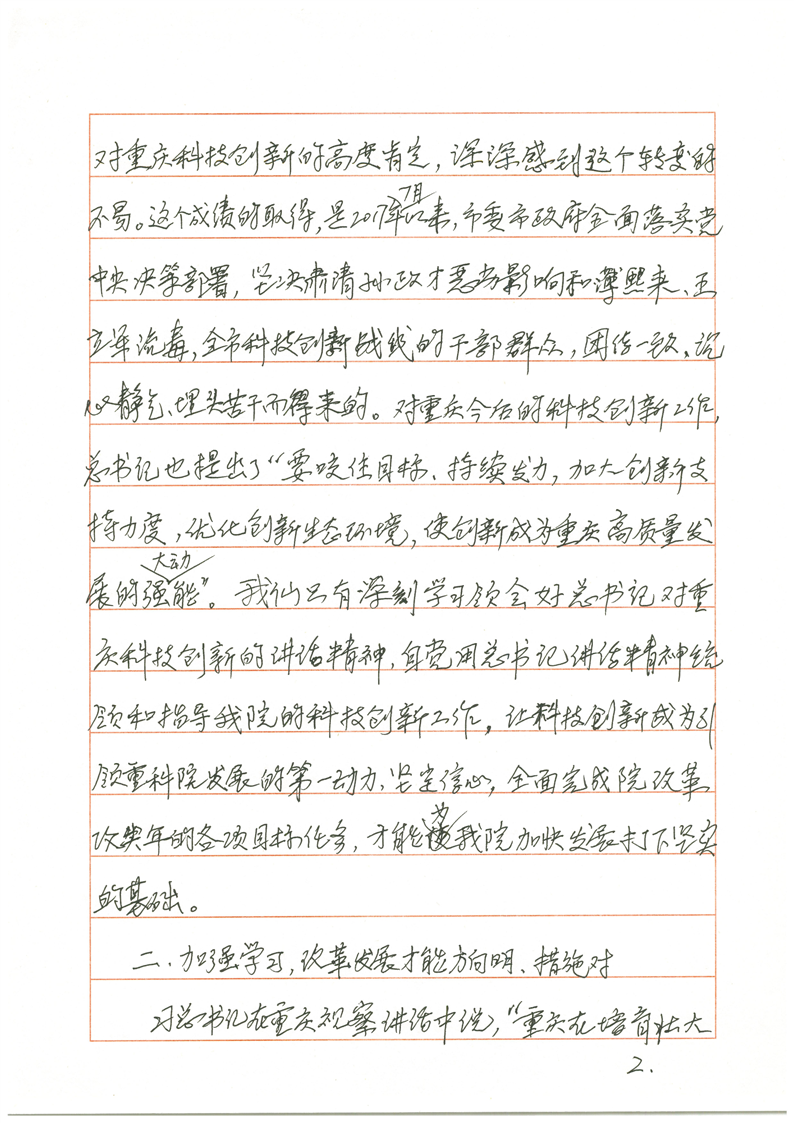 对重庆科技创新的高度肯定，深深感到这个转变的
不易。这个成绩的取得，是2017年7月以来，市委市政府全面落实党
中央决策部署，坚决肃清孙政才恶劣影响和薄熙来、王
立军流毒，全市科技创新战线的干部群众，团结一致、沉
心静气、埋头苦干而得来的。对重庆今后的科技创新工作，
总书记也提出了“要咬住目标、持续发力，加大创新支
持力度，优化创新生态环境，使创新成为重庆高质量发
展的强大动能”。我们只有深刻学习领会好总书记对重
庆科技创新的讲话精神，自觉用总书记讲话精神统
领和指导我院的科技创新工作，让科技创新成为引
领重科院发展的第一动力、坚定信心，全面完成院改革
攻坚年的各项目标任务，才能为我院加快发展打下坚实
的基础。
二、加强学习，改革发展才能方向明、措施对
习总书记在重庆视察讲话中说，“重庆在培育壮大
2.